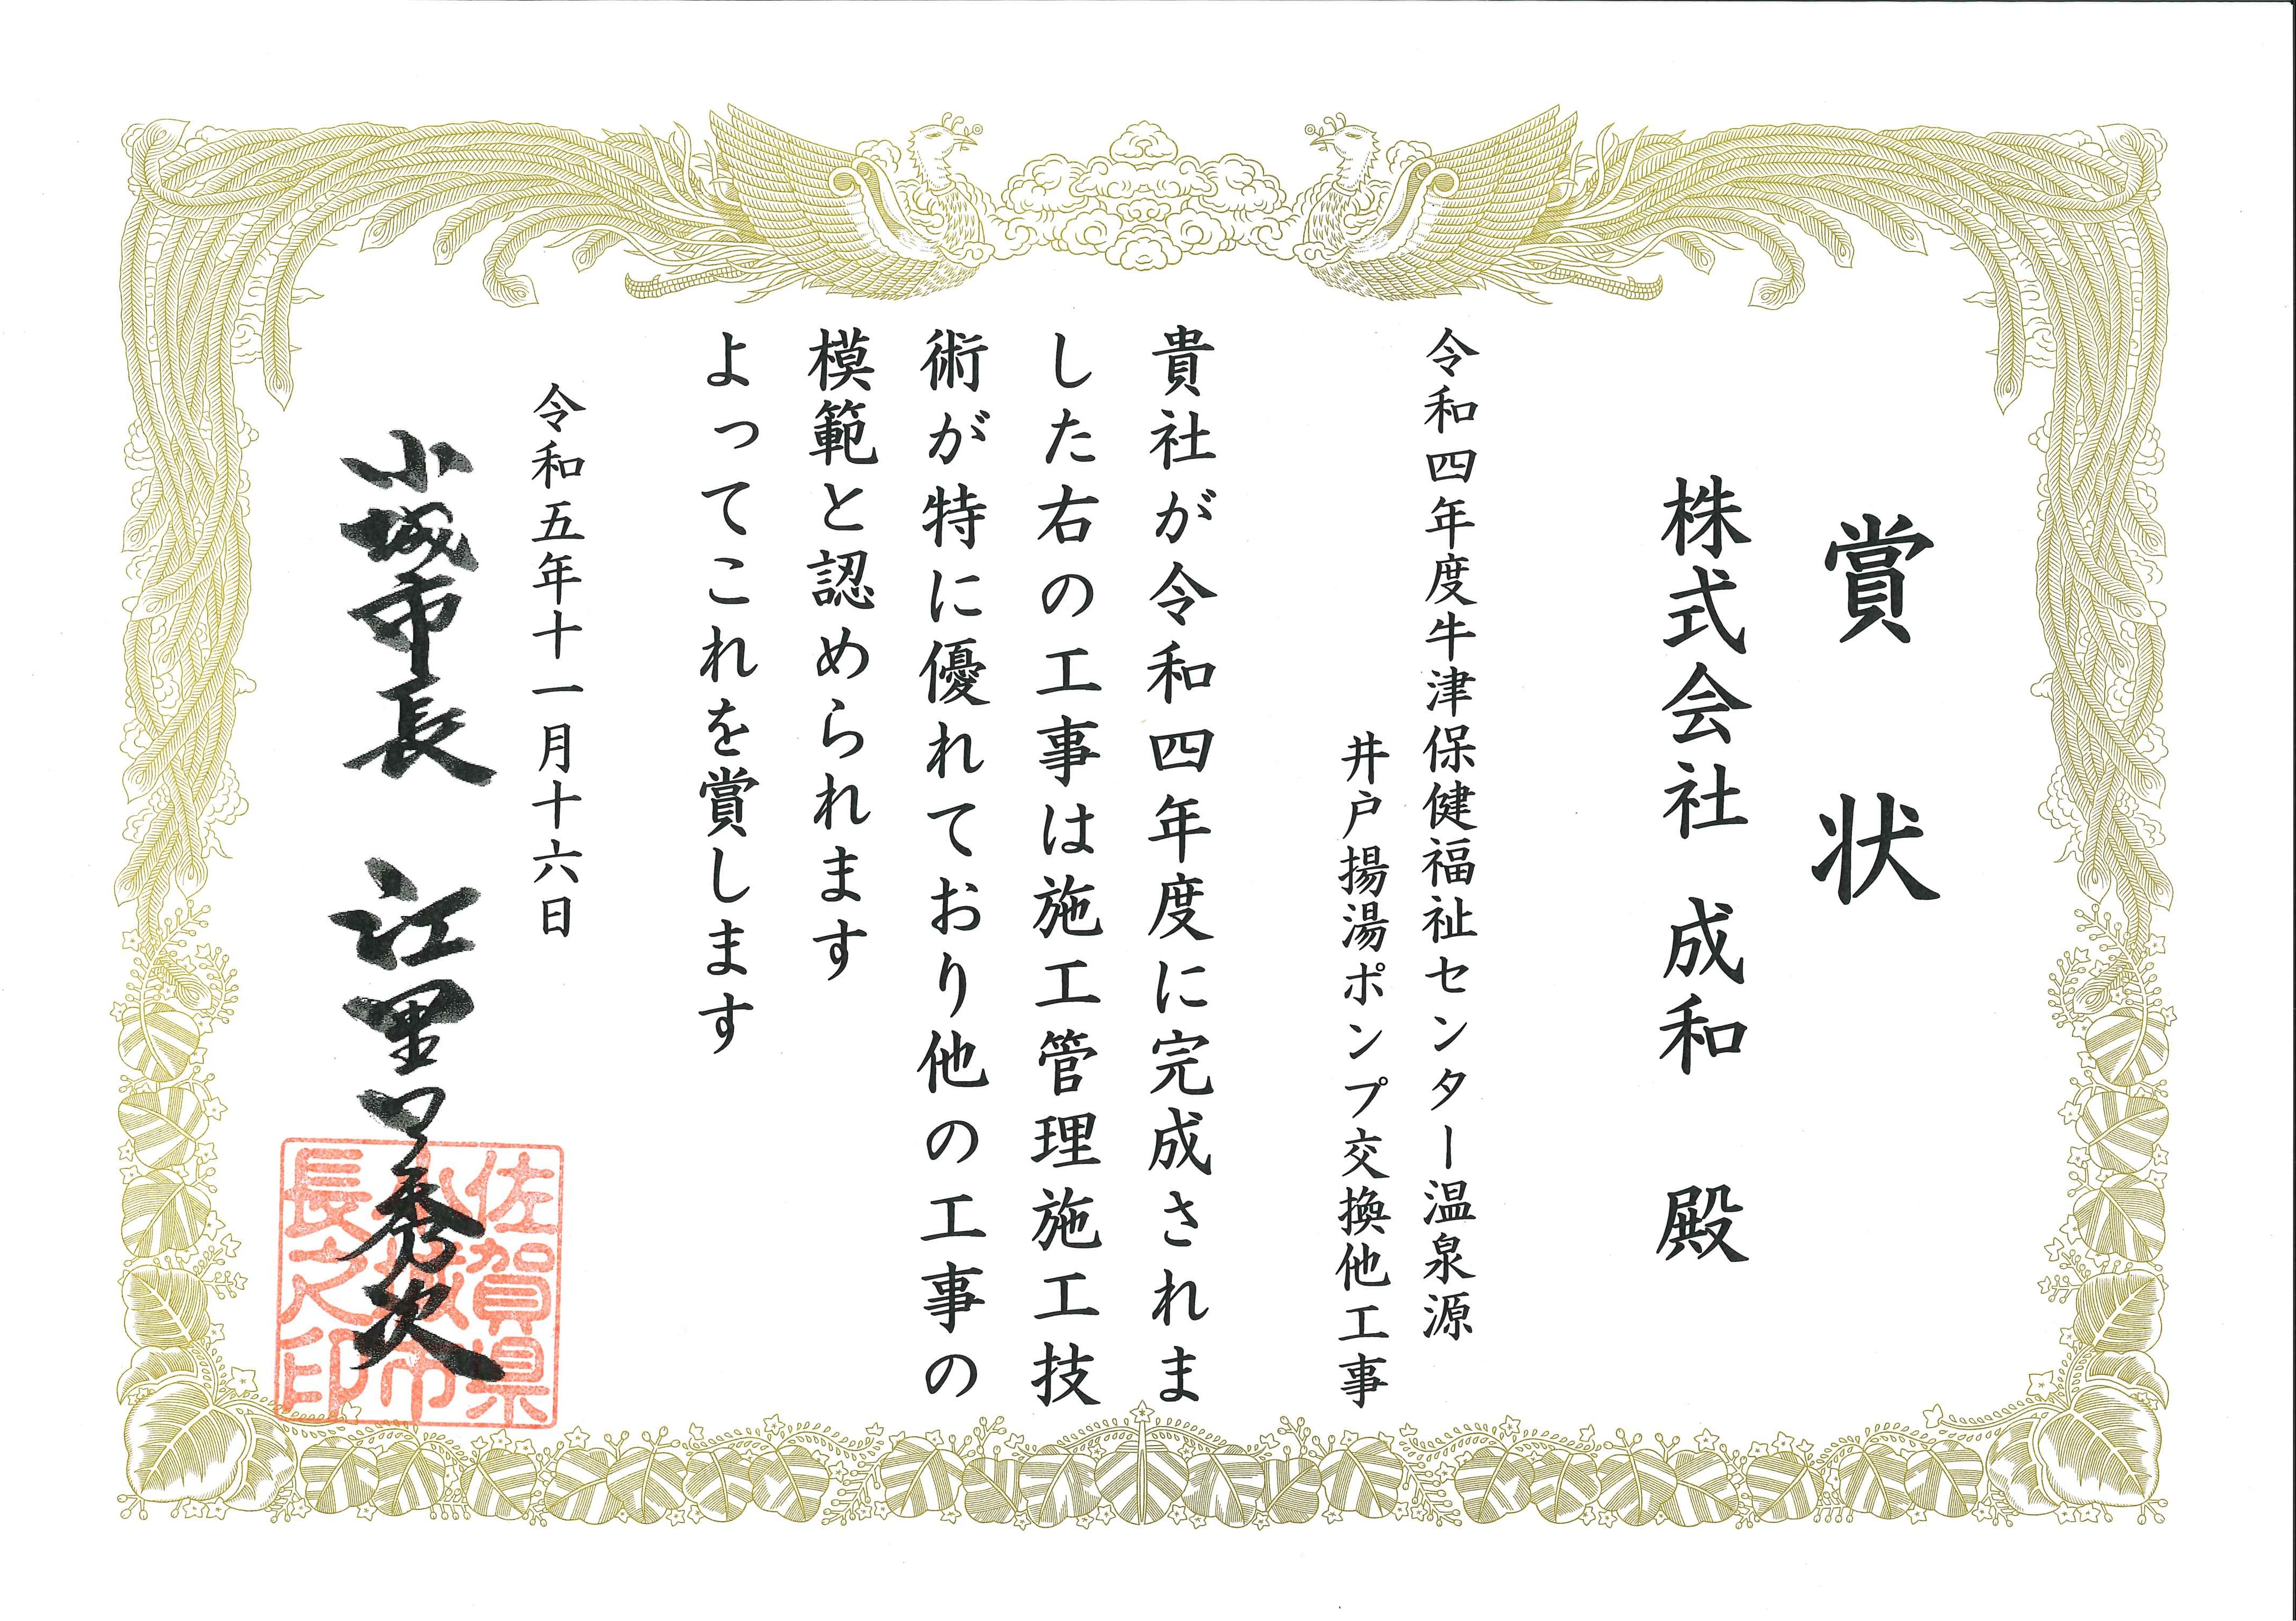 賞状
株式会社 成和 殿
令和四年度牛津保健福祉センター温泉源
井戸揚湯ポンプ交換他工事
貴社が令和四年度に完成されま
した右の工事は施工管理施工技
術が特に優れており他の工事の
模範と認められます
よってこれを賞します
令和五年十一月十六日
小城市長 江里口秀次
佐賀県
小城市
長之印